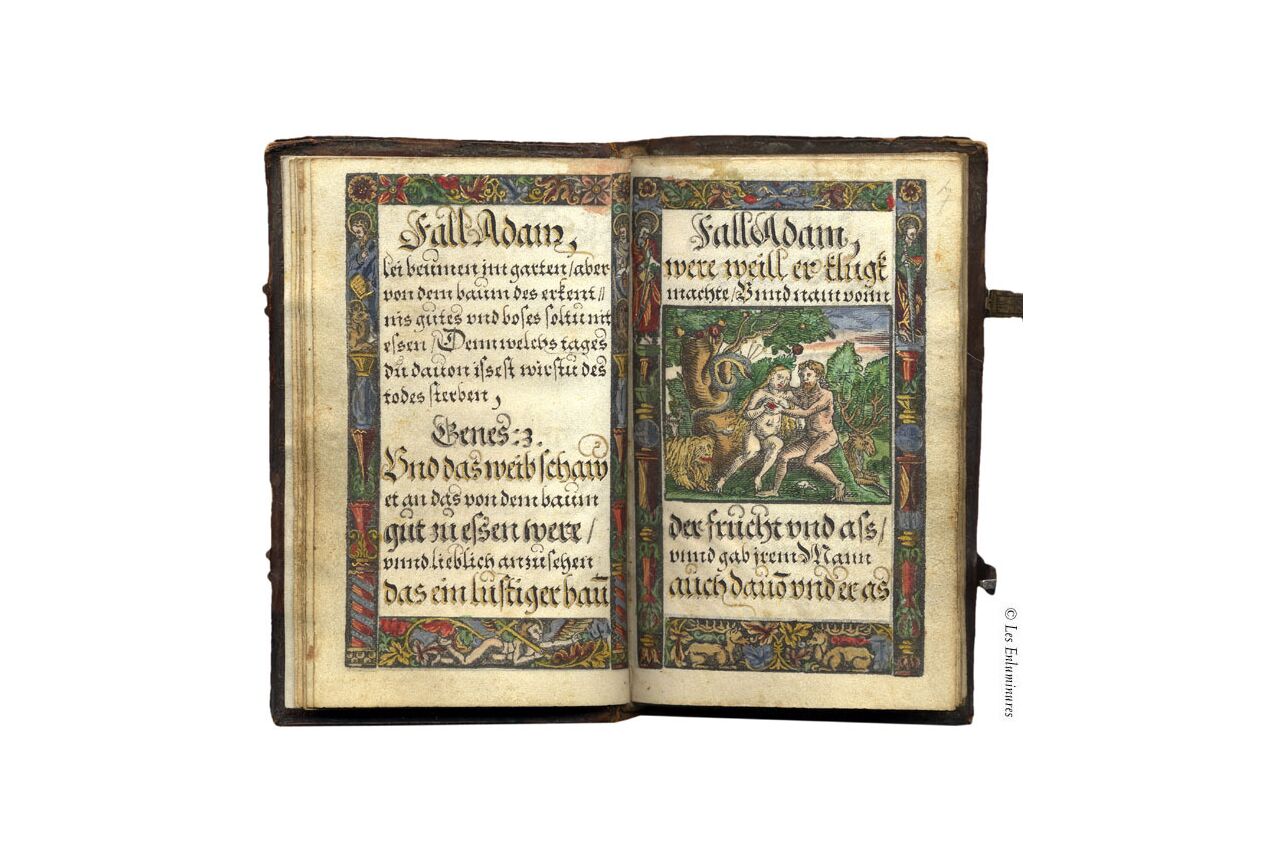 Fall Adam,
lei beumen jm garten / aber
von dem baum des erkent //
nis gutes vnd boses soltu nit
essen / Denn welchs tages
du dauon issest wirstu des
todes sterben,
Genes: 3.
Vnd das weib schaw
et an das von dem baum
gut zu essen were /
vnnd lieblich anzusehen
das ein lustiger baū
Fall Adam,
were weill er klugk
machte / Vnnd nam vonn
der frucht vnd ass /
vnnd gab jrem Mann
auch dauō vnd er as
© Les Enluminures